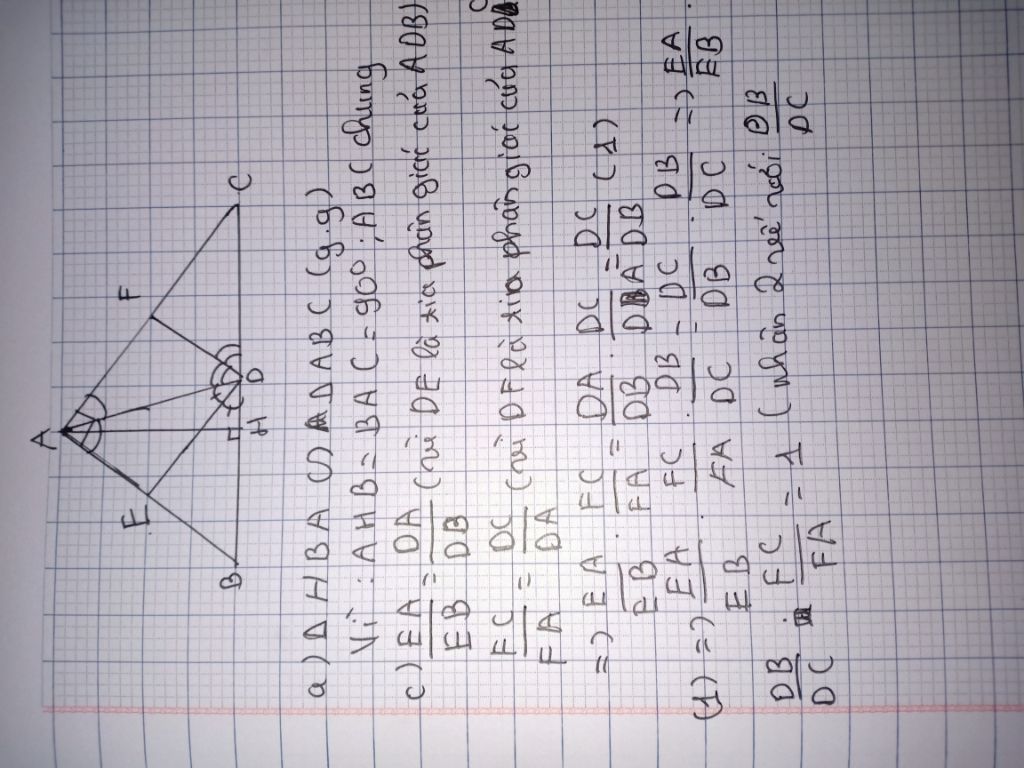 A
E
F
B
H
D
C
a) Δ HBA ∽ Δ ABC (g.g)
Vì: AHB = BAC = 90°; ABC chung
c) EA/EB = DA/DB (vì DE là tia phân giác của ADB)
FC/FA = DC/DA (vì DF là tia phân giác của AD
=> EA/EB . FC/FA = DA/DB . DC/DA = DC/DB (1)
(1) => EA/EB . FC/FA . DB/DC = DC/DB . DB/DC => EA/EB .
DB/DC . FC/FA = 1 (nhân 2 vế với DB/DC